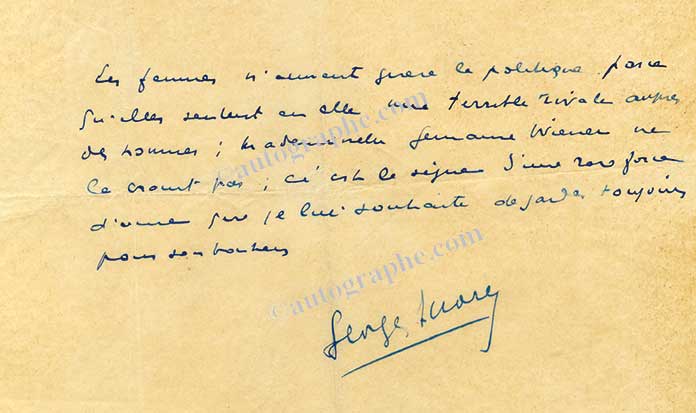 Les femmes n'aiment guère la politique parce
qu'elles sentent en elle une terrible rivale auprès
des hommes ; Mademoiselle Germaine Wiener ne
la craint pas ; c'est le signe d'une rare force
d'âme que je lui souhaite de garder toujours
pour son bonheur
Georges Suarez
©autographe.com
©autographe.com